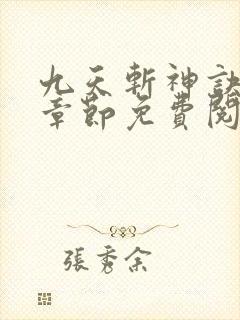 九天斬神訣
章節免費閱
張秀余